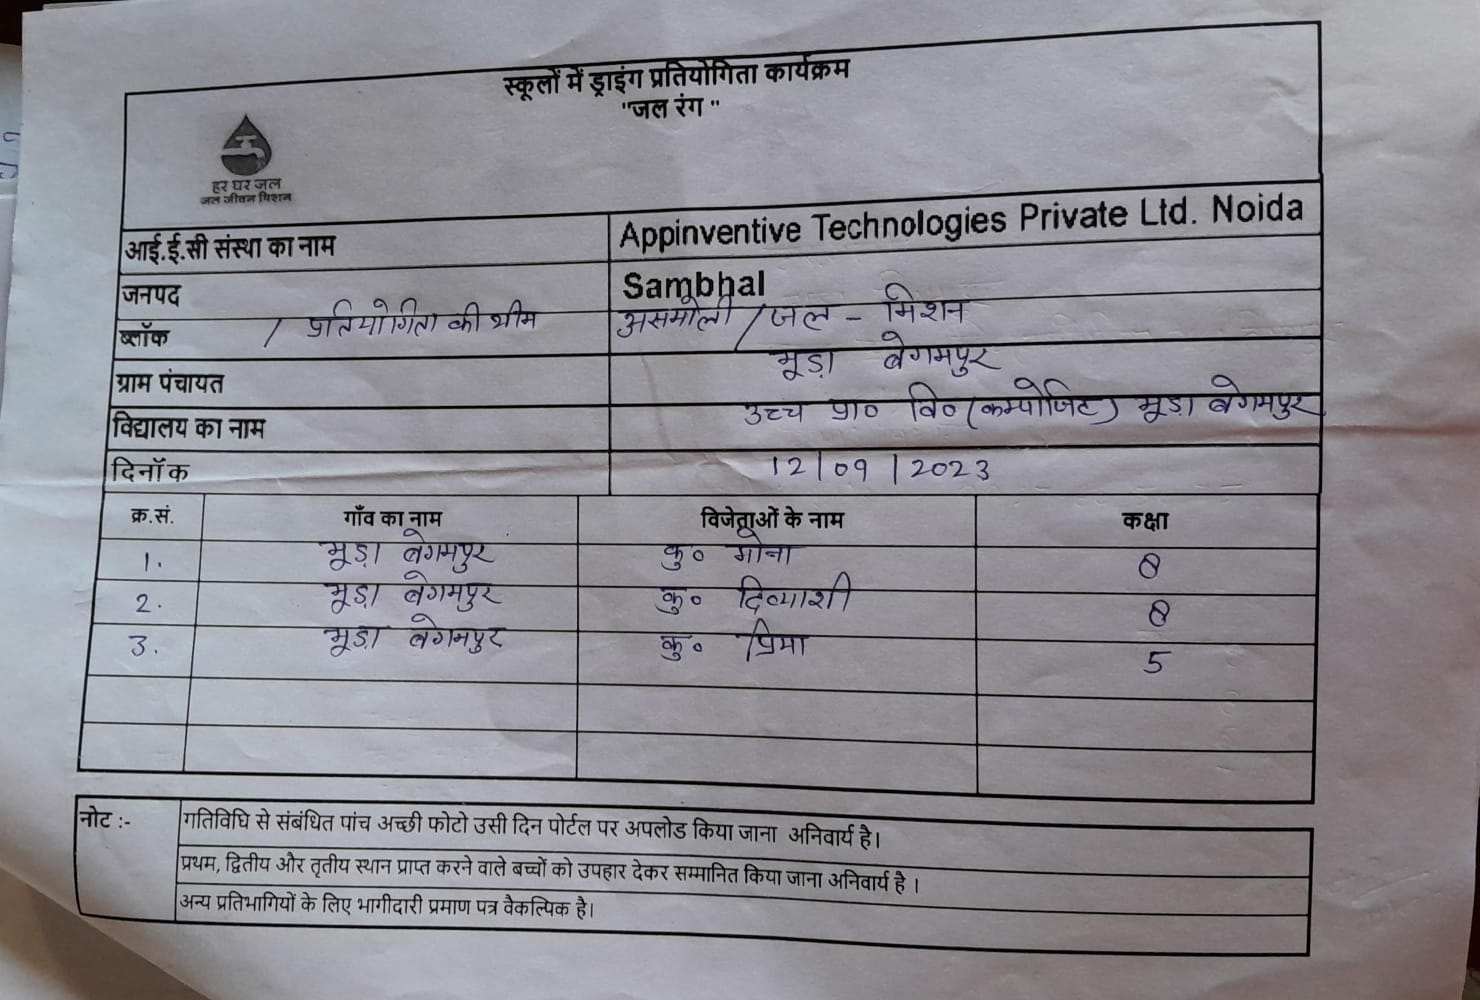 स्कूलों में ड्राइंग प्रतियोगिता कार्यक्रम
"जल रंग "
हर घर जल
जल जीवन मिशन
आई.ई.सी संस्था का नाम Appinventive Technologies Private Ltd. Noida
जनपद Sambhal
ब्लॉक / प्रतियोगिता की थीम असमोली / जल - मिशन
ग्राम पंचायत मूड़ा बेगमपुर
विद्यालय का नाम उच्च प्रा० वि० (कम्पोजिट) मूड़ा बेगमपुर
दिनॉक 12/09/2023
क्र.सं. गाँव का नाम विजेताओं के नाम कक्षा
1. मूड़ा बेगमपुर कु० 8
2. मूड़ा बेगमपुर कु० दिव्याशी 8
3. मूड़ा बेगमपुर कु० 5
नोट :- गतिविधि से संबंधित पांच अच्छी फोटो उसी दिन पोर्टल पर अपलोड किया जाना अनिवार्य है।
प्रथम, द्वितीय और तृतीय स्थान प्राप्त करने वाले बच्चों को उपहार देकर सम्मानित किया जाना अनिवार्य है ।
अन्य प्रतिभागियों के लिए भागीदारी प्रमाण पत्र वैकल्पिक है।